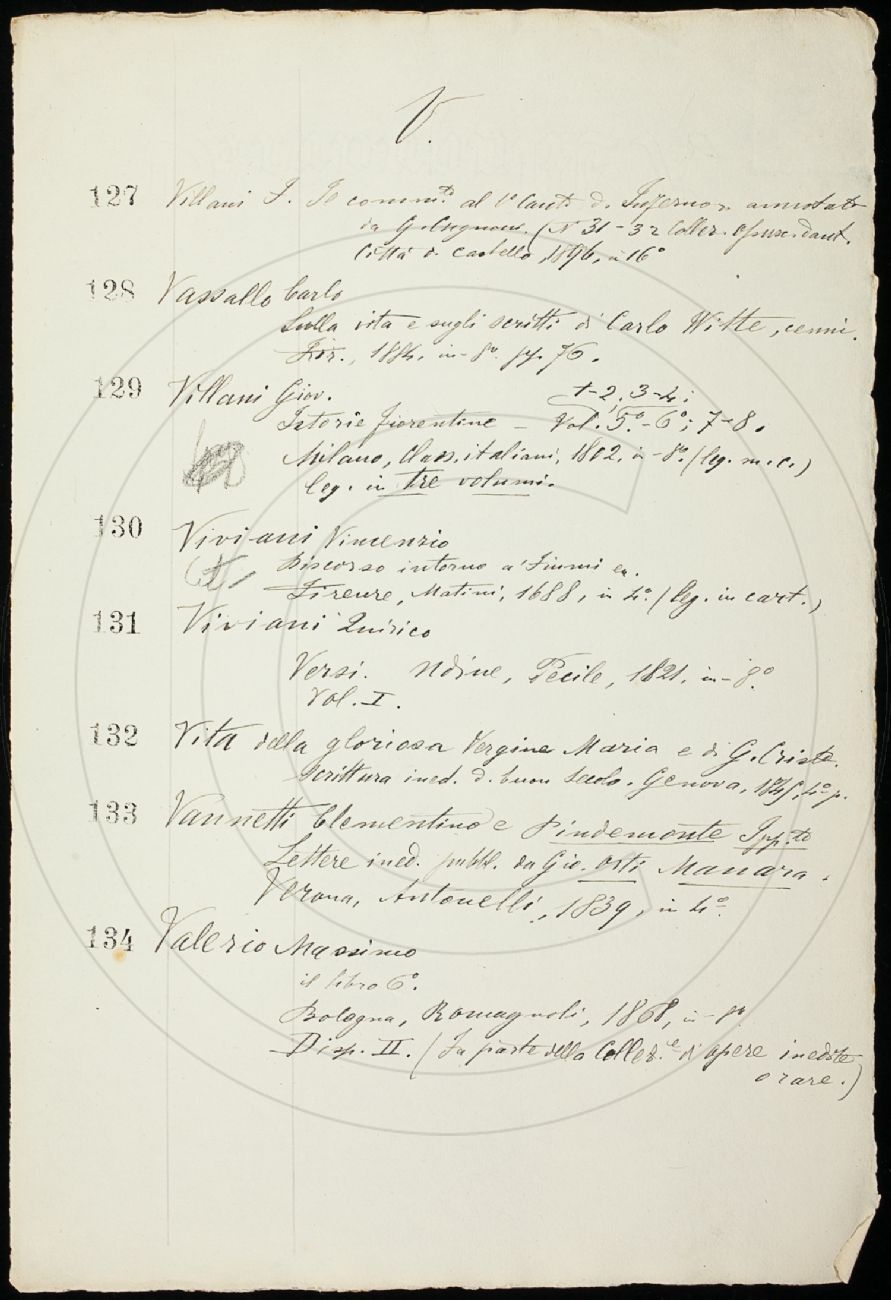 V.
127 Villani F. Io comm.to al 1º Canto d. Inferno annotato
da G. Cugnoni. (Nº 31-32 Collez. opusc. dant.
Città di Castello, 1896, in 16º
128 Vassallo Carlo
Sulla vita e sugli scritti di Carlo Witte, cenni.
Fir., 1884, in-8º pp. 76.
129 Villani Giov. 1-2, 3-4;
Istorie fiorentine - Vol. 5º-6º; 7-8.
Milano, Class. italiani, 1802, in-8º. (leg. m. c.)
leg. in tre volumi.
130 Viviani Vincenzio
Discorso intorno a' Fiumi ec.
Firenze, Matini, 1688, in 4º. (leg. in cart.)
131 Viviani Quirico
Versi. Udine, Pecile, 1821, in-8º.
Vol. I.
132 Vita della gloriosa Vergine Maria e di G. Cristo.
Scrittura ined. d. buon secolo. Genova, 4º p.
133 Vannetti Clementino e Pindemonte Ipp.to
Lettere ined. pubbl. da Gio. Orti Manara.
Verona, Antonelli, 1839, in 4º.
134 Valerio Massimo
il libro 6º.
Bologna, Romagnoli, 1868, in-8º
Disp. II. (Fa parte della Collez.e di opere inedite
o rare.)